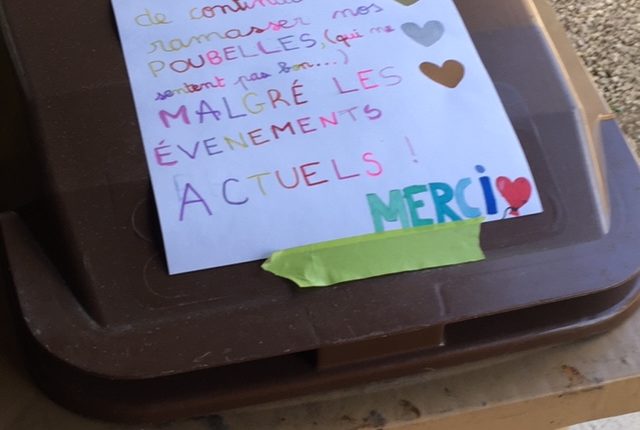 de continuer
ramasser nos
POUBELLES, (qui ne
sentent pas bon...)
MALGRÉ LES
ÉVENEMENTS
ACTUELS !
MERCi